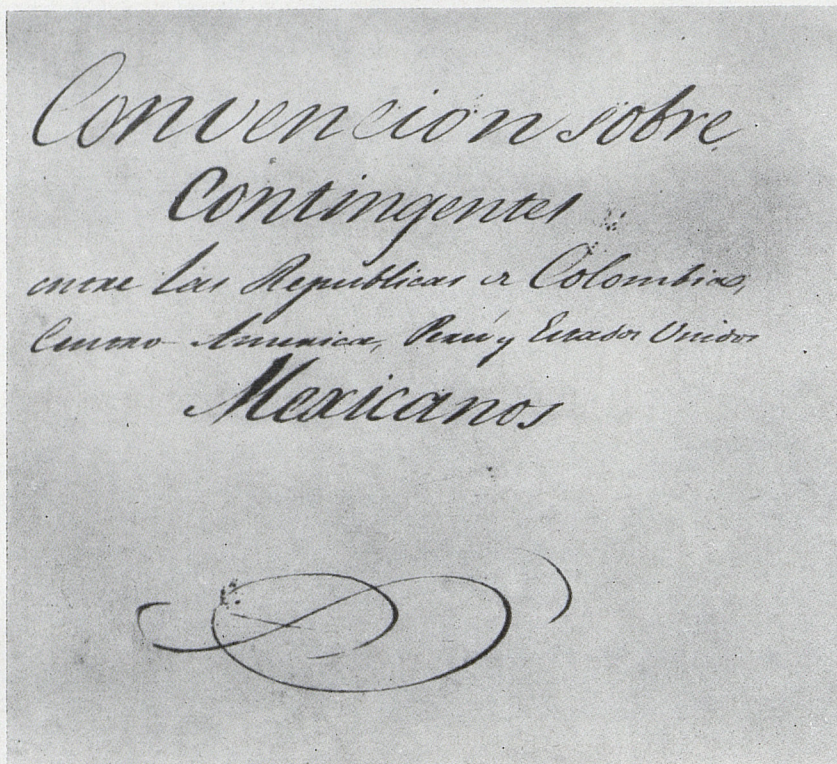 Convencion sobre
Contingentes
entre las Republicas de Colombia,
Centro America, Perú y Estados Unidos
Mexicanos